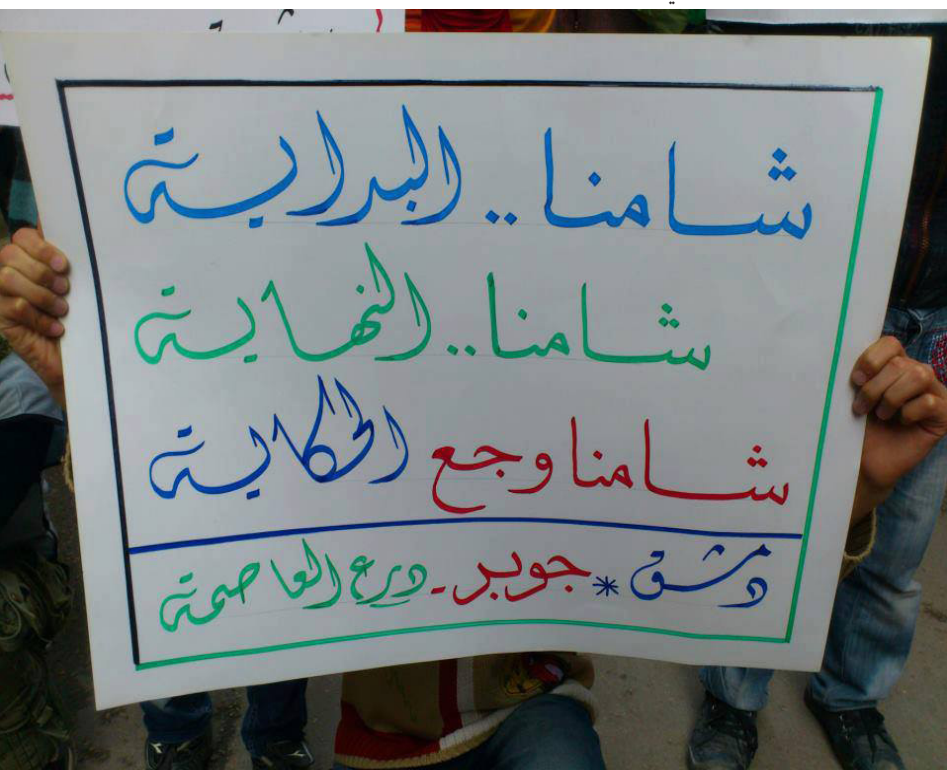 شامنا .. البداية
شامنا .. النهاية
شامنا وجع الحكاية
دمشق * جوبر - درع العاصمة